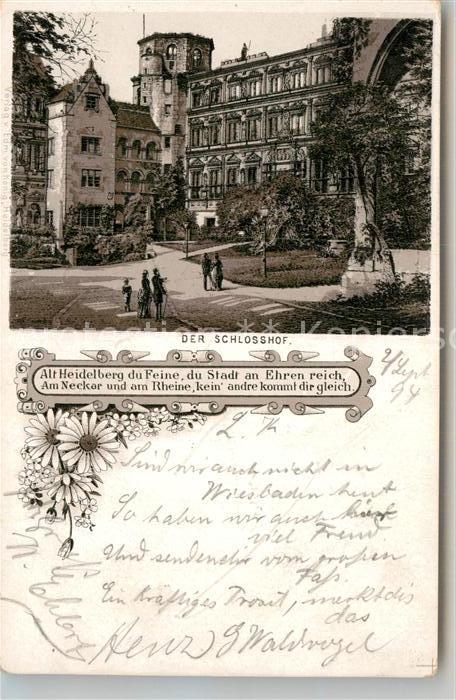 DER SCHLOSSHOF.
Alt Heidelberg du Feine, du Stadt an Ehren reich,
Am Neckar und am Rheine, kein' andre kommt dir gleich.
2/Sept
94
L. K.
Sind wir auch nicht in
Wiesbaden heut
So haben wir auch hier
viel Freud
Und senden dir vom großen
Faß.
Ein Kräftiges Prosit, merkt dir
das
G Waldvogel